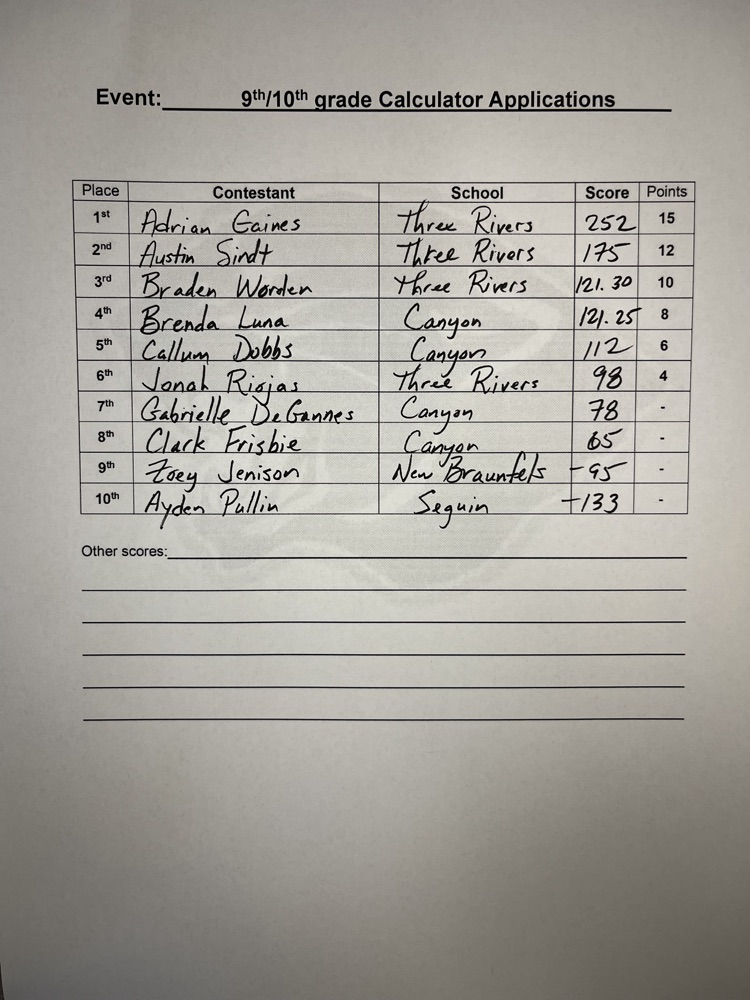 Event: 9th/10th grade Calculator Applications
Place Contestant School Score Points
1st Adrian Gaines Three Rivers 252 15
2nd Austin Sindt Three Rivers 175 12
3rd Braden Worden Three Rivers 121.30 10
4th Brenda Luna Canyon 121.25 8
5th Callum Dobbs Canyon 112 6
6th Jonah Riojas Three Rivers 98 4
7th Gabrielle DeGannes Canyon 78 -
8th Clark Frisbie Canyon 65 -
9th Zoey Jenison New Braunfels -95 -
10th Ayden Pullin Seguin -133 -
Other scores: